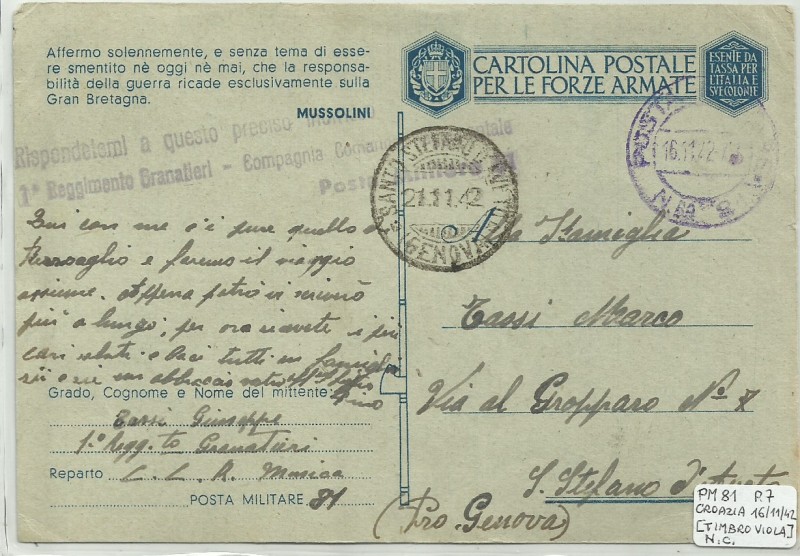 Affermo solennemente, e senza tema di esse-
re smentito nè oggi nè mai, che la responsa-
bilità della guerra ricade esclusivamente sulla
Gran Bretagna.
MUSSOLINI
CARTOLINA POSTALE
PER LE FORZE ARMATE
ESENTE DA
TASSA PER
L'ITALIA E
SVE COLONIE
Rispondetemi a questo preciso
1° Reggimento Granatieri - Compagnia
Posta
SANTO STEFANO D'AVETO
21.11.42
(GENOVA)
POSTA
16.11.42
N. 81
Qui con me c'è pure quello di
e faremo il viaggio
assieme. Appena potrò vi scriverò
più a lungo, per ora ricevete i più
cari saluti e baci tutti in famiglia
un abbraccio vostro
Pino
Grado, Cognome e Nome del mittente:
Tassi Giuseppe
1° Regg.to Granatieri
Reparto C. L. R. Musica
POSTA MILITARE 81
Alla Famiglia
Tassi Marco
Via al Gropparo N° 8
S. Stefano d'Aveto
(Pro. Genova)
PM 81 P.7
CROAZIA 16/11/42
[TIMBRO VIOLA]
N.C.